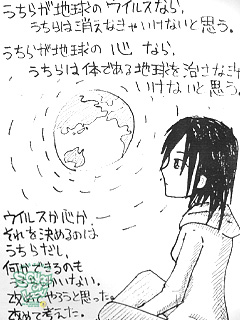 うちらが地球のウイルスなら、
うちらは消えなきゃいけないと思う。
うちらが地球の心なら、
うちらは体である地球を治さなきゃ
いけないと思う。
ウイルスか心か、
それを決めるのは
うちらだし、
何ができるのも
しかいない。
改めてやろうと思った。
改めて考えた。